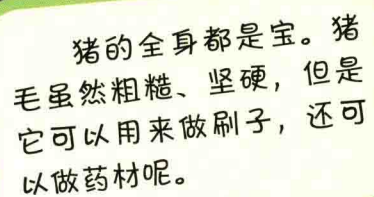 猪的全身都是宝。猪
毛虽然粗糙、坚硬，但是
它可以用来做刷子，还可
以做药材呢。